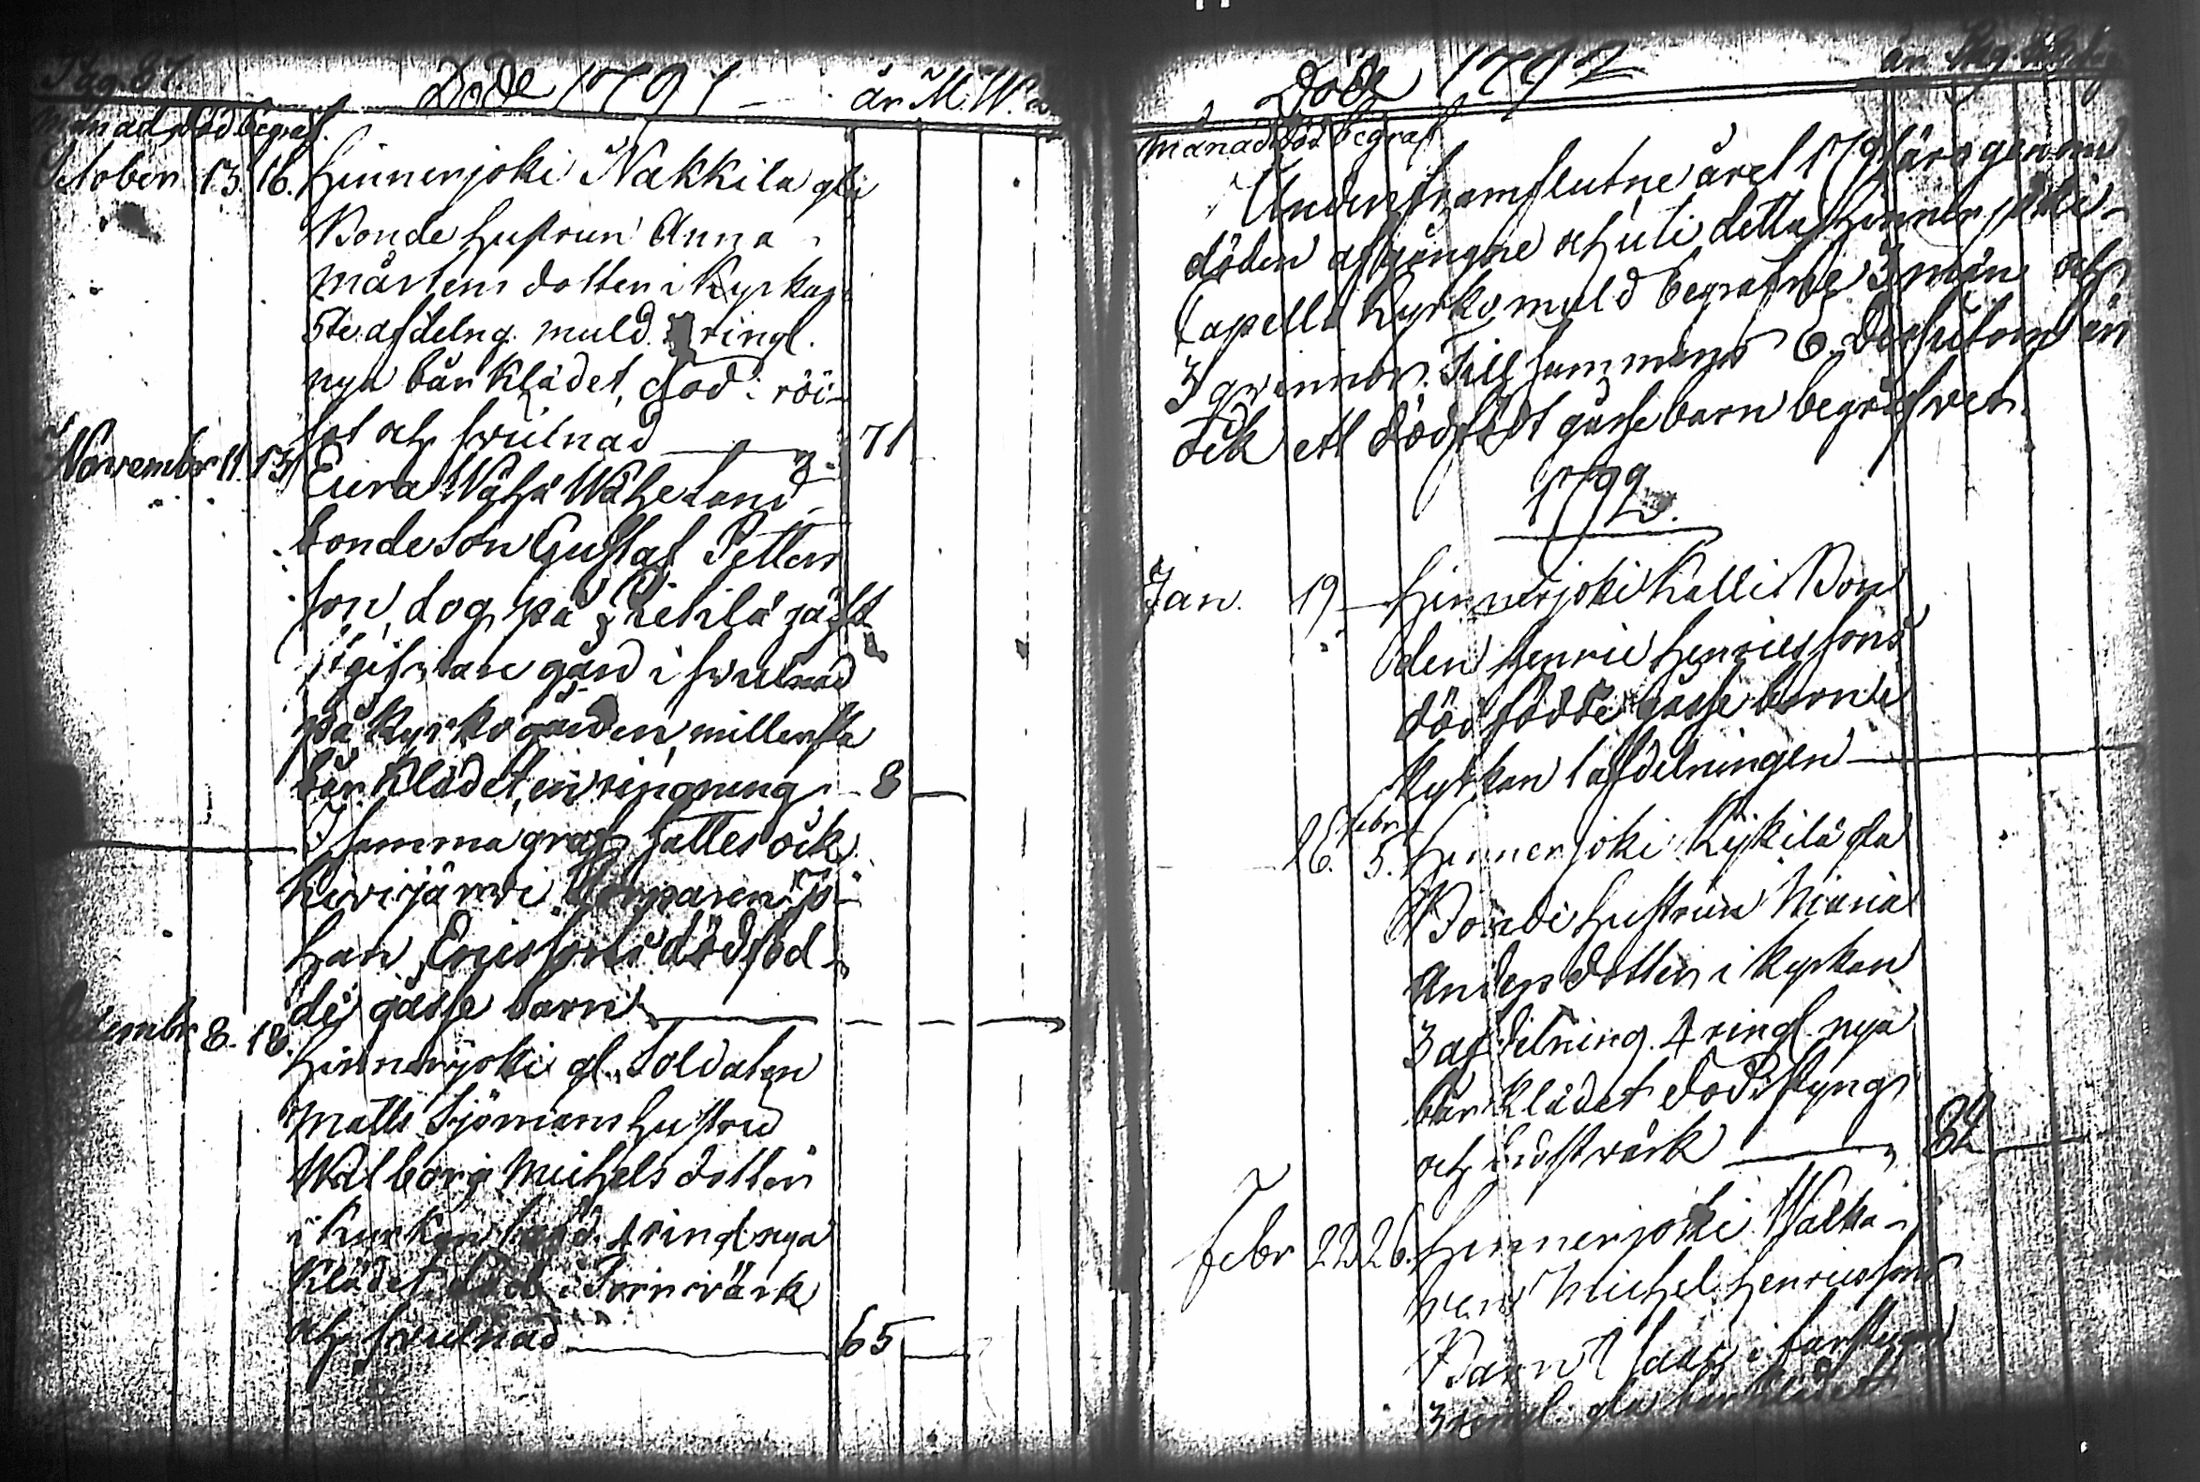 Pag. 87.
Döde 1791 år M. W.
Månad död begraf.
October 13. 16. Hinnerjoki Nakkila gla
Bonde hustrun Anna
Mårtens dotter i Kyrkan
5te afdelng. muld. ringl.
nya bårklädet, död i röt-
sot och svulnad 71
Novembr 11. 13 Eura Wähä Wähetand
bonde son Gustaf Petters
son, dog på Pietilä
gård i svulnad
på Kyrkogården, millersta
bårklädet, en ringning 8
I samma graf sattes ock
Kivijärvi Torparen Jo-
han Ericssons dödföd-
de gosse barn
Decembr 8. 18. Hinnerjoki gl. Soldaten
Matts Sjömans hustru
Walborg Michels dotter
i Kyrkan 4 ringl. nya
Klädet, död i Torrvärk
och svulnad 65
Döde 1792
Månad död begraf
Under framflutne året 1791 äro genom
döden afgångne och uti detta Hinnerjoki
Capells Kyrkomuld begrafne 3 män och
3 qvinnor. Tillsammans 6. Dessutom är
ock ett dödfödt gosse barn begrafvet.
1792.
Jan. 19 Hinnerjoki Kallis Bon
den Henric Henricssons
dödfödde gosse barn i
Kyrkan 1 afdelningen
26. Febr 5. Hinnerjoki Kykilä gla
Bonde hustrun Maria
Anders dotter i Kyrkan
3 afdelning. 4 ringl. nya
bårklädet död i styng
och bröstvärk 82
Febr 22 26. Hinnerjoki Walka-
Michel Henricssons
Barn Isaac i farstugun
3 ringl. gla bårklädet